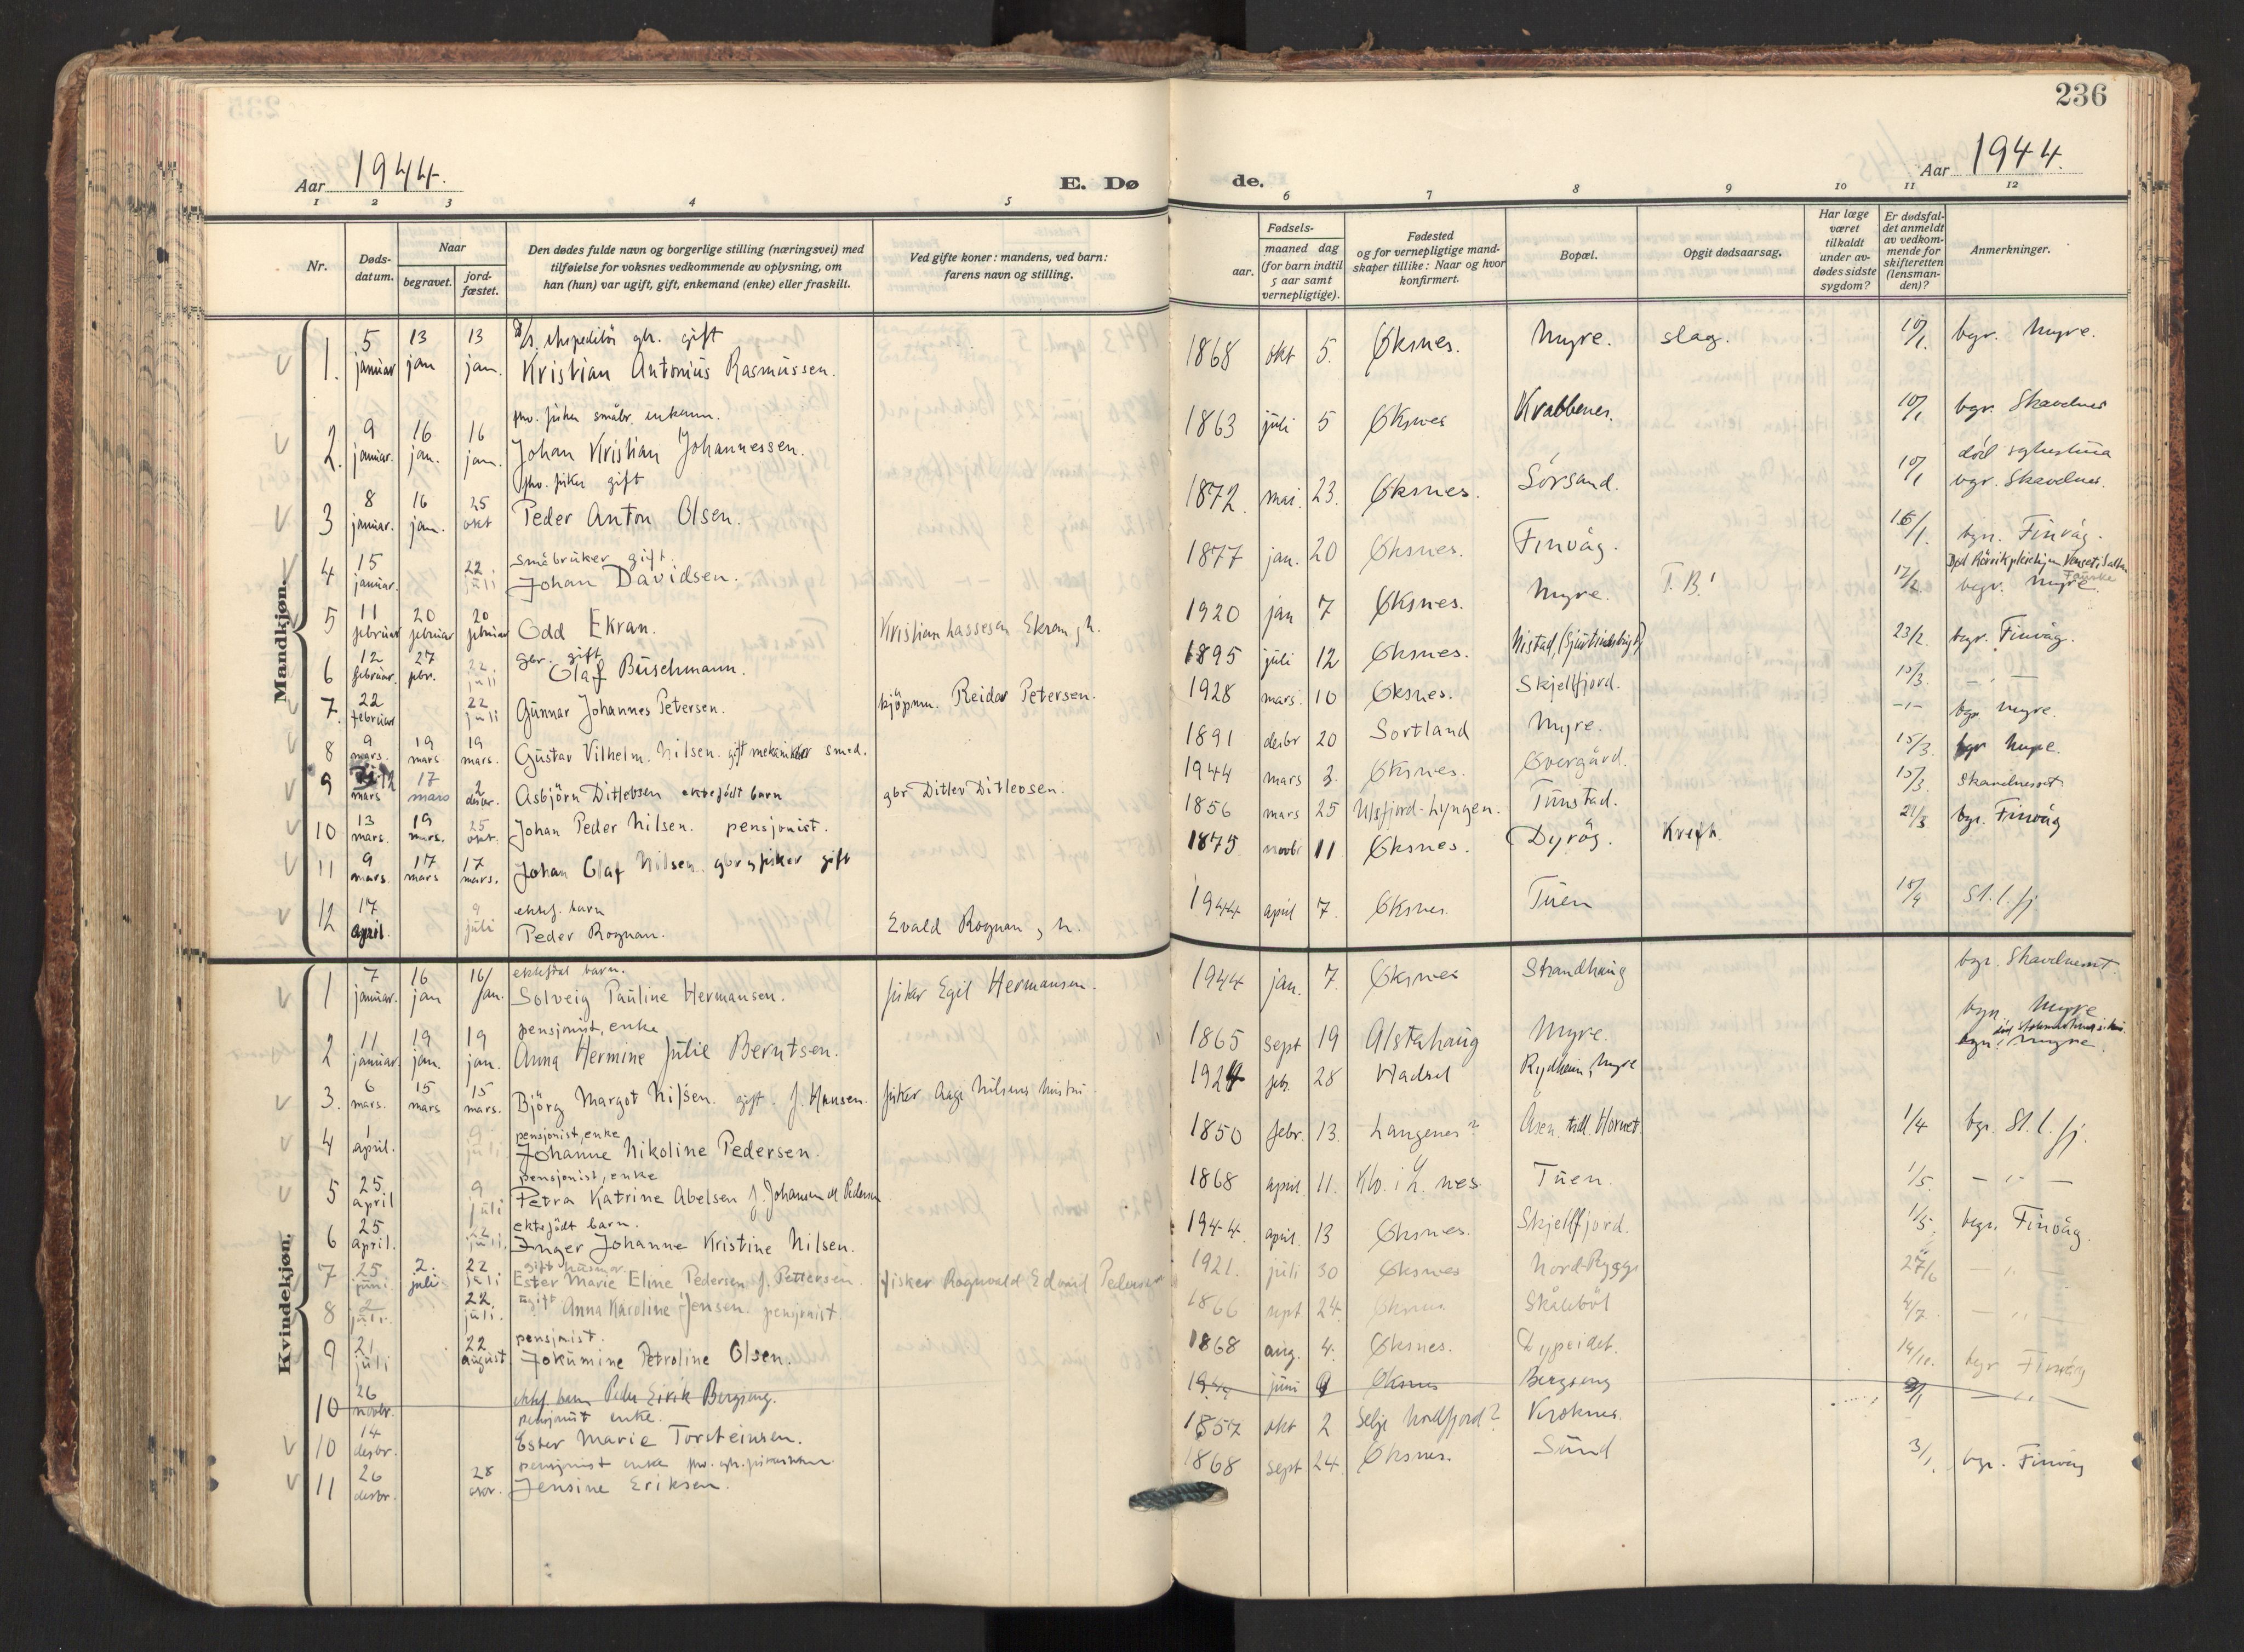 236
Aar 1944.
E. Dø
de.
Aar 1944.
1 2 3 4 5
6 7 8 9 10 11 12
Nr.
Døds-
datum.
Naar
begravet.
jord-
fæstet.
Den dødes fulde navn og borgerlige stilling (næringsvei) med
tilføielse for voksnes vedkommende av oplysning, om
han (hun) var ugift, gift, enkemand (enke) eller fraskilt.
Ved gifte koner: mandens, ved barn:
farens navn og stilling.
Fødsels-
aar.
maaned dag
(for barn indtil
5 aar samt
vernepligtige).
Fødested
og for vernepligtige mand-
skaper tillike: Naar og hvor
konfirmert.
Bopæl.
Opgit dødsaarsag.
Har læge
været
tilkaldt
under av-
dødes sidste
sygdom?
Er dødsfal-
det anmeldt
av vedkom-
mende for
skifteretten
(lensman-
den)?
Anmerkninger.
Mandkjøn.
gift
1. 5 januar 13 jan 13 jan. Kristian Antonius Rasmussen. 1868 okt 5. Øksnes. Myre. slag. 10/1. bgr. Myre.
2. 9 januar. 16 jan. 16 jan. Johan Kristian Johannessen. 1863 juli 5 Øksnes Krabbenes. 10/1 bgr. Skavdnes
gift
3 8 januar. 16 jan. 25 okt Peder Anton Olsen. 1872. mai 23. Øksnes. Sörsand. 10/1 död bgr. Skavdnes.
småbruker gift.
4 15 januar. 22. juli Johan Davidsen. 1877 jan. 20 Øksnes. Finvåg. 16/1. bgr. Finvåg.
5 11 februar 20 februar 20 februar Odd Ekran. Kristian Lassesen Ekran, h. 1920 jan 7 Øksnes. Myre. T.B. 17/2 begr. Myre.
gbr. gift
6 12 februar. 27 febr. 22. juli Olaf Buschmann. 1895 juli 12 Øksnes. Nistad, 23/2. begr. Finvåg.
7. 22 februar 22 juli Gunnar Johannes Petersen. kjöpm. Reidar Petersen. 1928 mars. 10 Øksnes. Skjellfjord. 15/3. — " —
8 9 mars. 19 mars 19 mars. Gustav Vilhelm. Nilsen. gift smed. 1891 desbr 20 Sortland Myre. - " - bgr. Myre.
9 mars 17 mars 2 desbr. Asbjörn Ditlevsen ektefödt barn gbr Ditlev Ditlevsen. 1944 mars 3. Øksnes. Övergård. 15/3. bgr Myre.
10 13 mars. 19 mars. 25 okt. Johan Peder Nilsen. pensjonist. 1856 mars 25 Ulsfjord-Lyngen. Tunstad. 15/3. Skavdnesset
11 9 mars. 17 mars 17 mars. Johan Olaf Nilsen. gbr og fisker gift 1875 novbr 11 Øksnes. Dyröy. Kreft. 21/3 bgr. Finvåg
ektef. barn
12 17 april. 9 juli Peder Rognan. Evald Rognan, h. 1944 april 7. Øksnes. Tuen 18/4 St. l. fj.
Kvindekjøn.
ektefödt barn.
1 7 januar. 16 jan 16/ jan. Solveig Pauline Hermansen. fisker Egil Hermansen. 1944 jan. 7. Øksnes Strandhaug bgr. Skavdnesset.
pensjonist, enke
2 11 januar. 19 jan. 19 jan. Anna Hermine Julie Berntsen. 1865 sept 19 Alstahaug Myre. bgr. Myre
3. 6 mars. 15 mars 15 mars. Björg Margot Nilsen. gift. f. Hansen. fisker Aage Nilsens hustru. 1924 feb. 28 Hadsel Rydheim, Myre bgr. Myre.
pensjonist, enke
4 1 april. 9 juli Johanne Nikoline Pedersen. 1850 febr. 13. Langenes? Åsen. 1/4 bgr. St. l. fj.
pensjonist, enke
5 25 april 9 juli Petra Katrine Abelsen f. Johansen 1868 april 11. Klo. i L. nes Tuen. 1/5. — " —
ektefödt barn.
6 25 april. 22 juli. Inger Johanne Kristine Nilsen. 1944. april. 13 Øksnes. Skjellfjord. 1/5 begr. Finvåg.
gift husmor.
7 25 juni. 2. juli 22 juli Ester Marie Eline Pedersen f. Pettersen. fisker Ragnvald Edvard Pedersen 1921. juli 30 Øksnes 27/6 — " —
ugift
8 2 juli. 22. juli. Anna Karoline Jensen. pensjonist. 1866 sept 24. Øksnes Skåleböl 4/7. — " —
pensjonist.
9 21 juli 22 august Jokumine Petroline Olsen. 1868 aug. 4. Øksnes. Dypeidet. 14/10. begr Finvåg
10 26 novbr. ektef. barn Peder Eirik Bergseng. juni 9 Øksnes Bergseng — " —
pensjonist enke.
10 14 desbr. Ester Marie Torsteinsen. 1857 okt 2 Selje Nordfjord? Vesteknes.
pensjonist enke
11 26 desbr. 28 Jensine Eriksen. 1868 sept 24. Øksnes. Sund 3/1. bgr. Finvåg